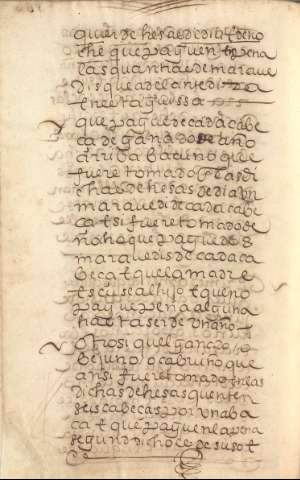 quier dehesa de dia t de no
che que paguen en pena
las quantias de marave
dis que adelante dira
en esta guissa
que pague de cada cabe
ça de ganado de año
arriba bacuno que
fuere tomado en las di
chas dehesas de dia un
maravedi de cada cabe
ça t si fuere tomado de
noche que pague dos
maravedis de cada ca
beça t que la madre
escuse al hijo t que no
pague pena alguna
hasta ser de un año
otrosi que el ganado o
bejuno o cabruño que
ansi fuere tomado en las
dichas dehesas que enten
seis cabeças por una ba
ca t que paguen la pena
segun dicho es de suso t